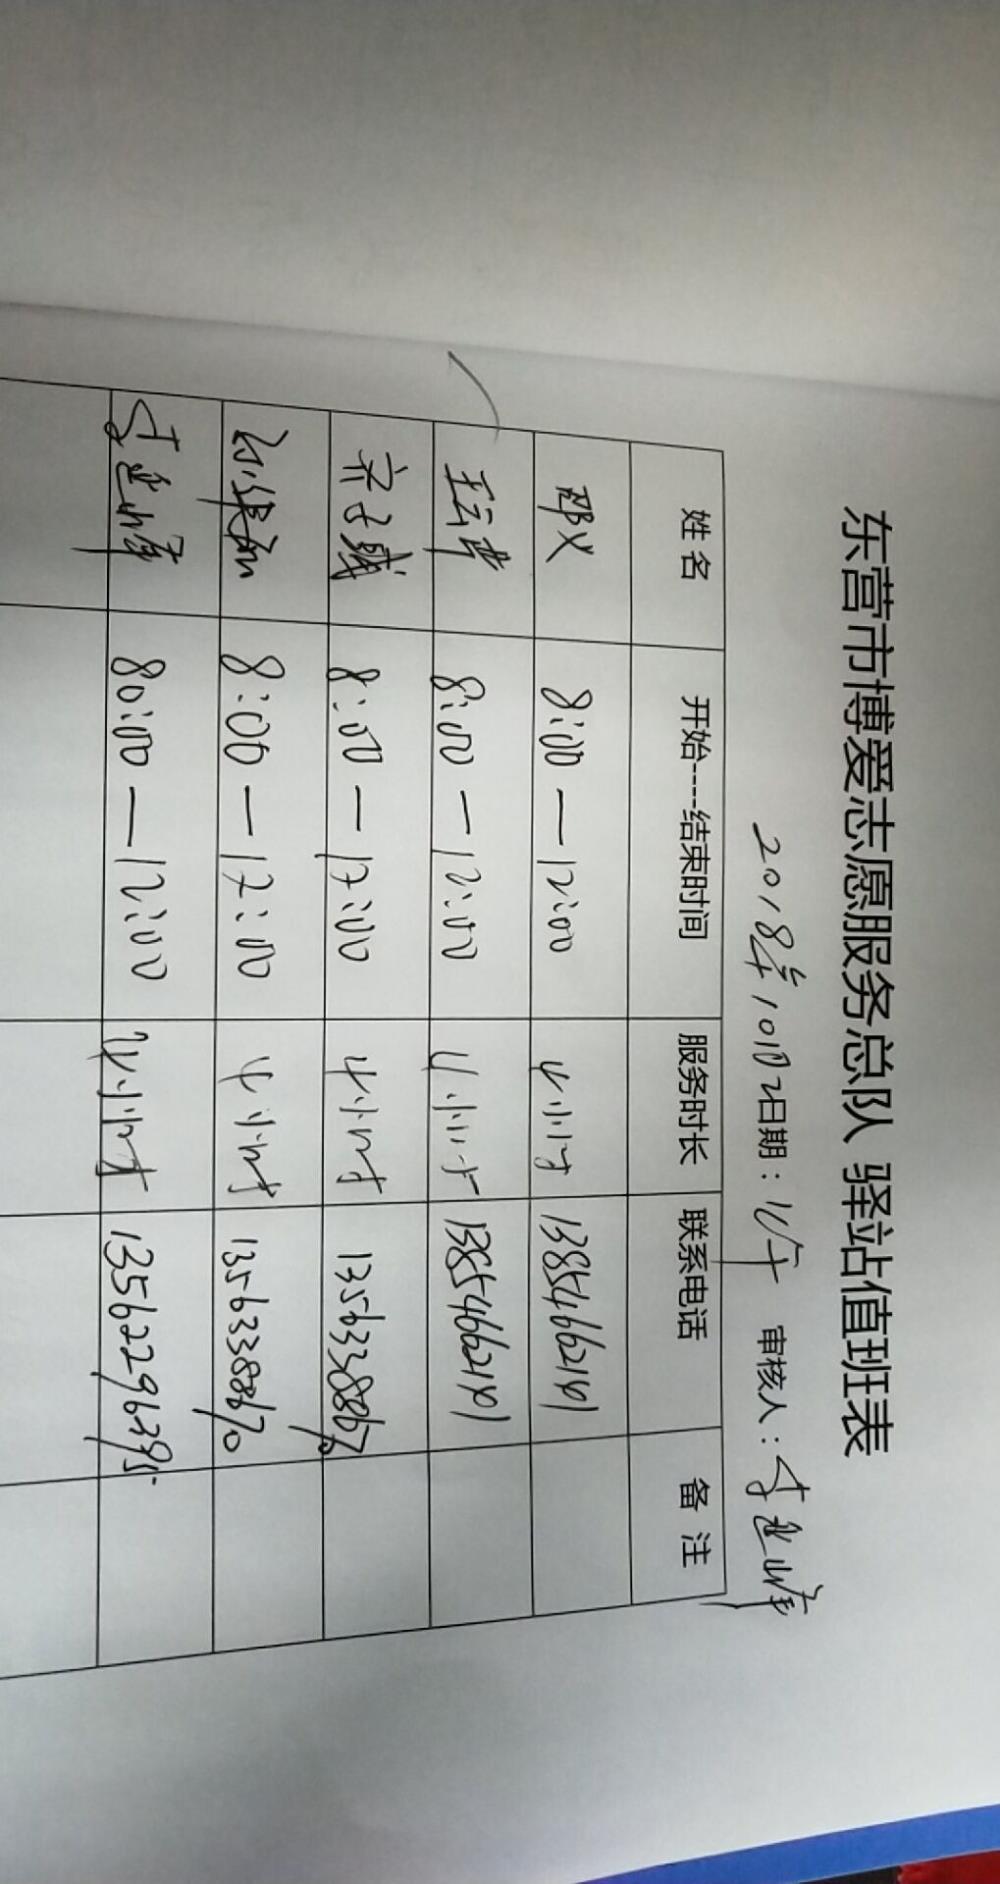 东营市博爱志愿服务总队 驿站值班表
2018年10月2日期：上午 审核人：李延峰
姓名 开始----结束时间 服务时长 联系电话 备注
8:00—12:00 4小时 13854662191
8:00—12:00 4小时 13854662191
8:00—12:00 4小时 13563388670
8:00—12:00 4小时 13563388670
李延峰 80:00—12:00 4小时 13562296395